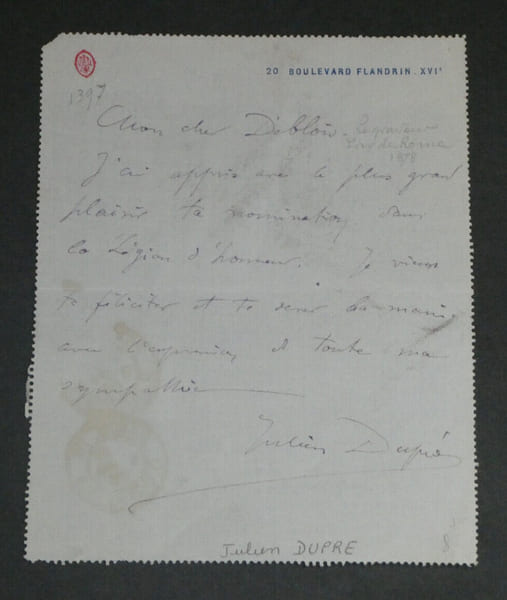 20 BOULEVARD FLANDRIN. XVIᵉ
1397
Mon cher Deblois - le graveur
Prix de Rome
1878
J'ai appris avec le plus grand
plaisir ta nomination dans
la Légion d'honneur. Je viens
te féliciter et te serrer la main
avec l'expression de toute ma
sympathie
Julien Dupré
Julien DUPRE
8